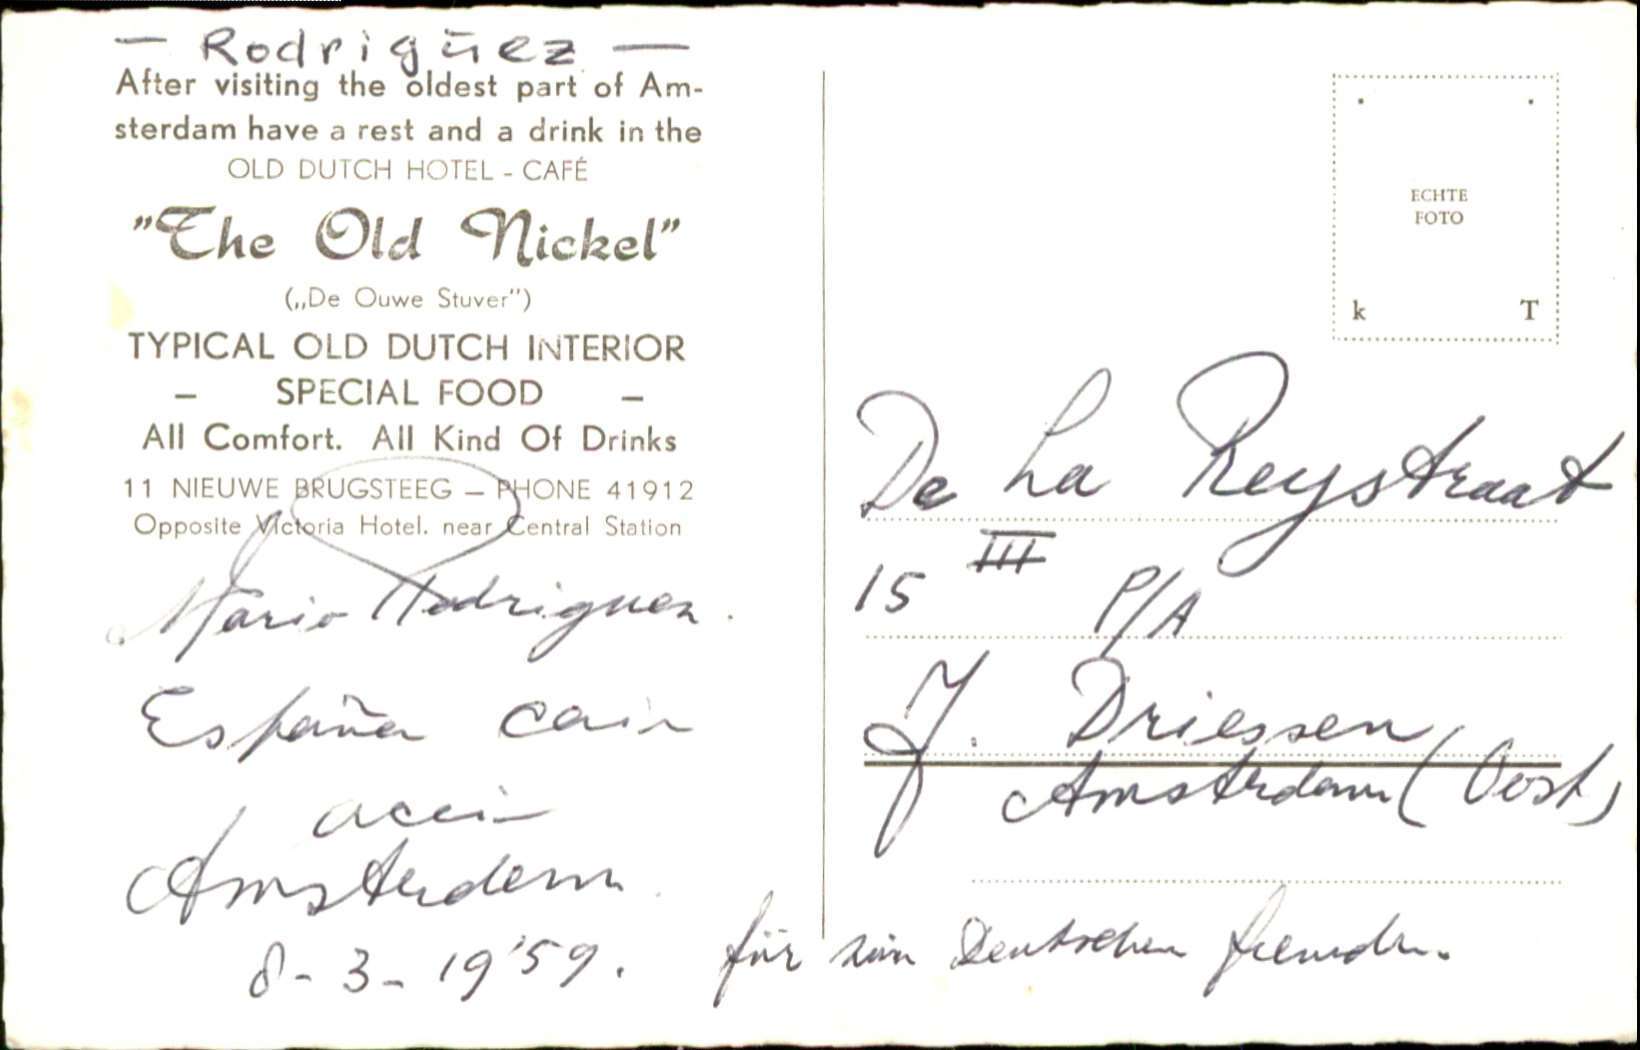 — Rodrigüez —
After visiting the oldest part of Am-
sterdam have a rest and a drink in the
OLD DUTCH HOTEL - CAFÉ
"The Old Nickel"
(„De Ouwe Stuver")
TYPICAL OLD DUTCH INTERIOR
- SPECIAL FOOD -
All Comfort. All Kind Of Drinks
11 NIEUWE BRUGSTEEG — PHONE 41912
Opposite Victoria Hotel. near Central Station
Mario Rodriguez.
España
Amsterdam.
8-3-19'59.
ECHTE
FOTO
k T
De La Reystraat
15 III P/A
J. Driessen
Amsterdam (Oost)
für Deutschen